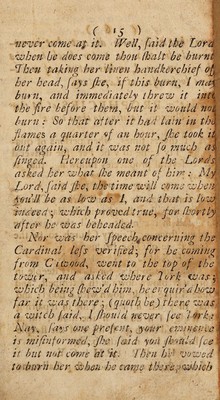 ( 15 )
never come at it. Well, said the Lord
when he does come thou shalt be burnt
Then taking her linen handkerchief of
her head, says she, if this burn, I may
burn, and immediately threw it into
the fire before them, but it would not
burn: So that after it had lain in the
flames a quarter of an hour, she took it
out again, and it was not so much as
singed. Hereupon one of the Lords
asked her what she meant of him: My
Lord, said she, the time will come when
you'll be as low as I, and that is low
indeed; which proved true, for shortly
after he was beheaded.
Nor was her speech concerning the
Cardinal less verified; for he coming
from Cawood, went to the top of the
tower, and asked where York was;
which being shew'd him, he enquir'd how
far it was there; (quoth he) there was
a witch said, I should never see York:
Nay, says one present, your eminence
is misinformed, she said you should see
it but not come at it. Then he vowed
to burn her when he came there, which